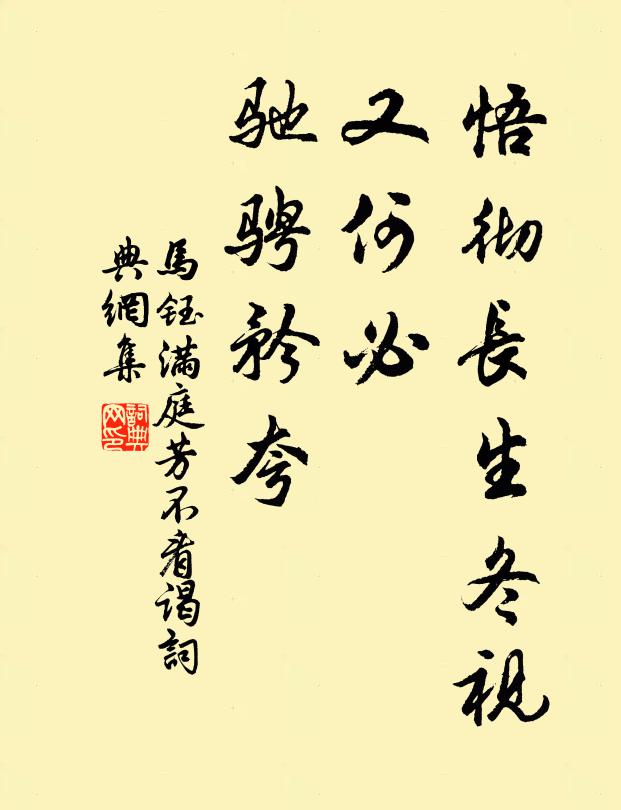 悟彻長生冬視
又何必
驰骋矜夸
馬鈺滿庭芳不看謁詞
典網集
詞典网印